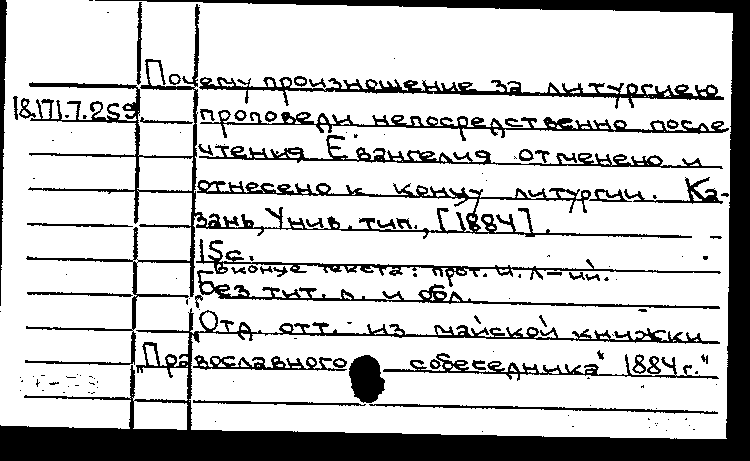 Почему произношение за литургиею
18.171.7.259. проповеди непосредственно после
чтения Евангелия отменено и
отнесено к концу литургии. Ка-
зань, Унив. тип., [1884].
15с.
В конце текста: прот. И. Л-ий.
Без тит. л. и обл.
"Отд. отт. из майской книжки
"Православного собеседника" 1884г."